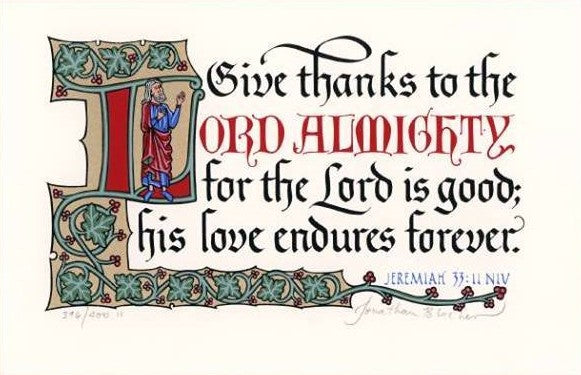 Give thanks to the
LORD ALMIGHTY,
for the Lord is good;
his love endures forever.
JEREMIAH 33:11 NIV
Jonathan Blocher